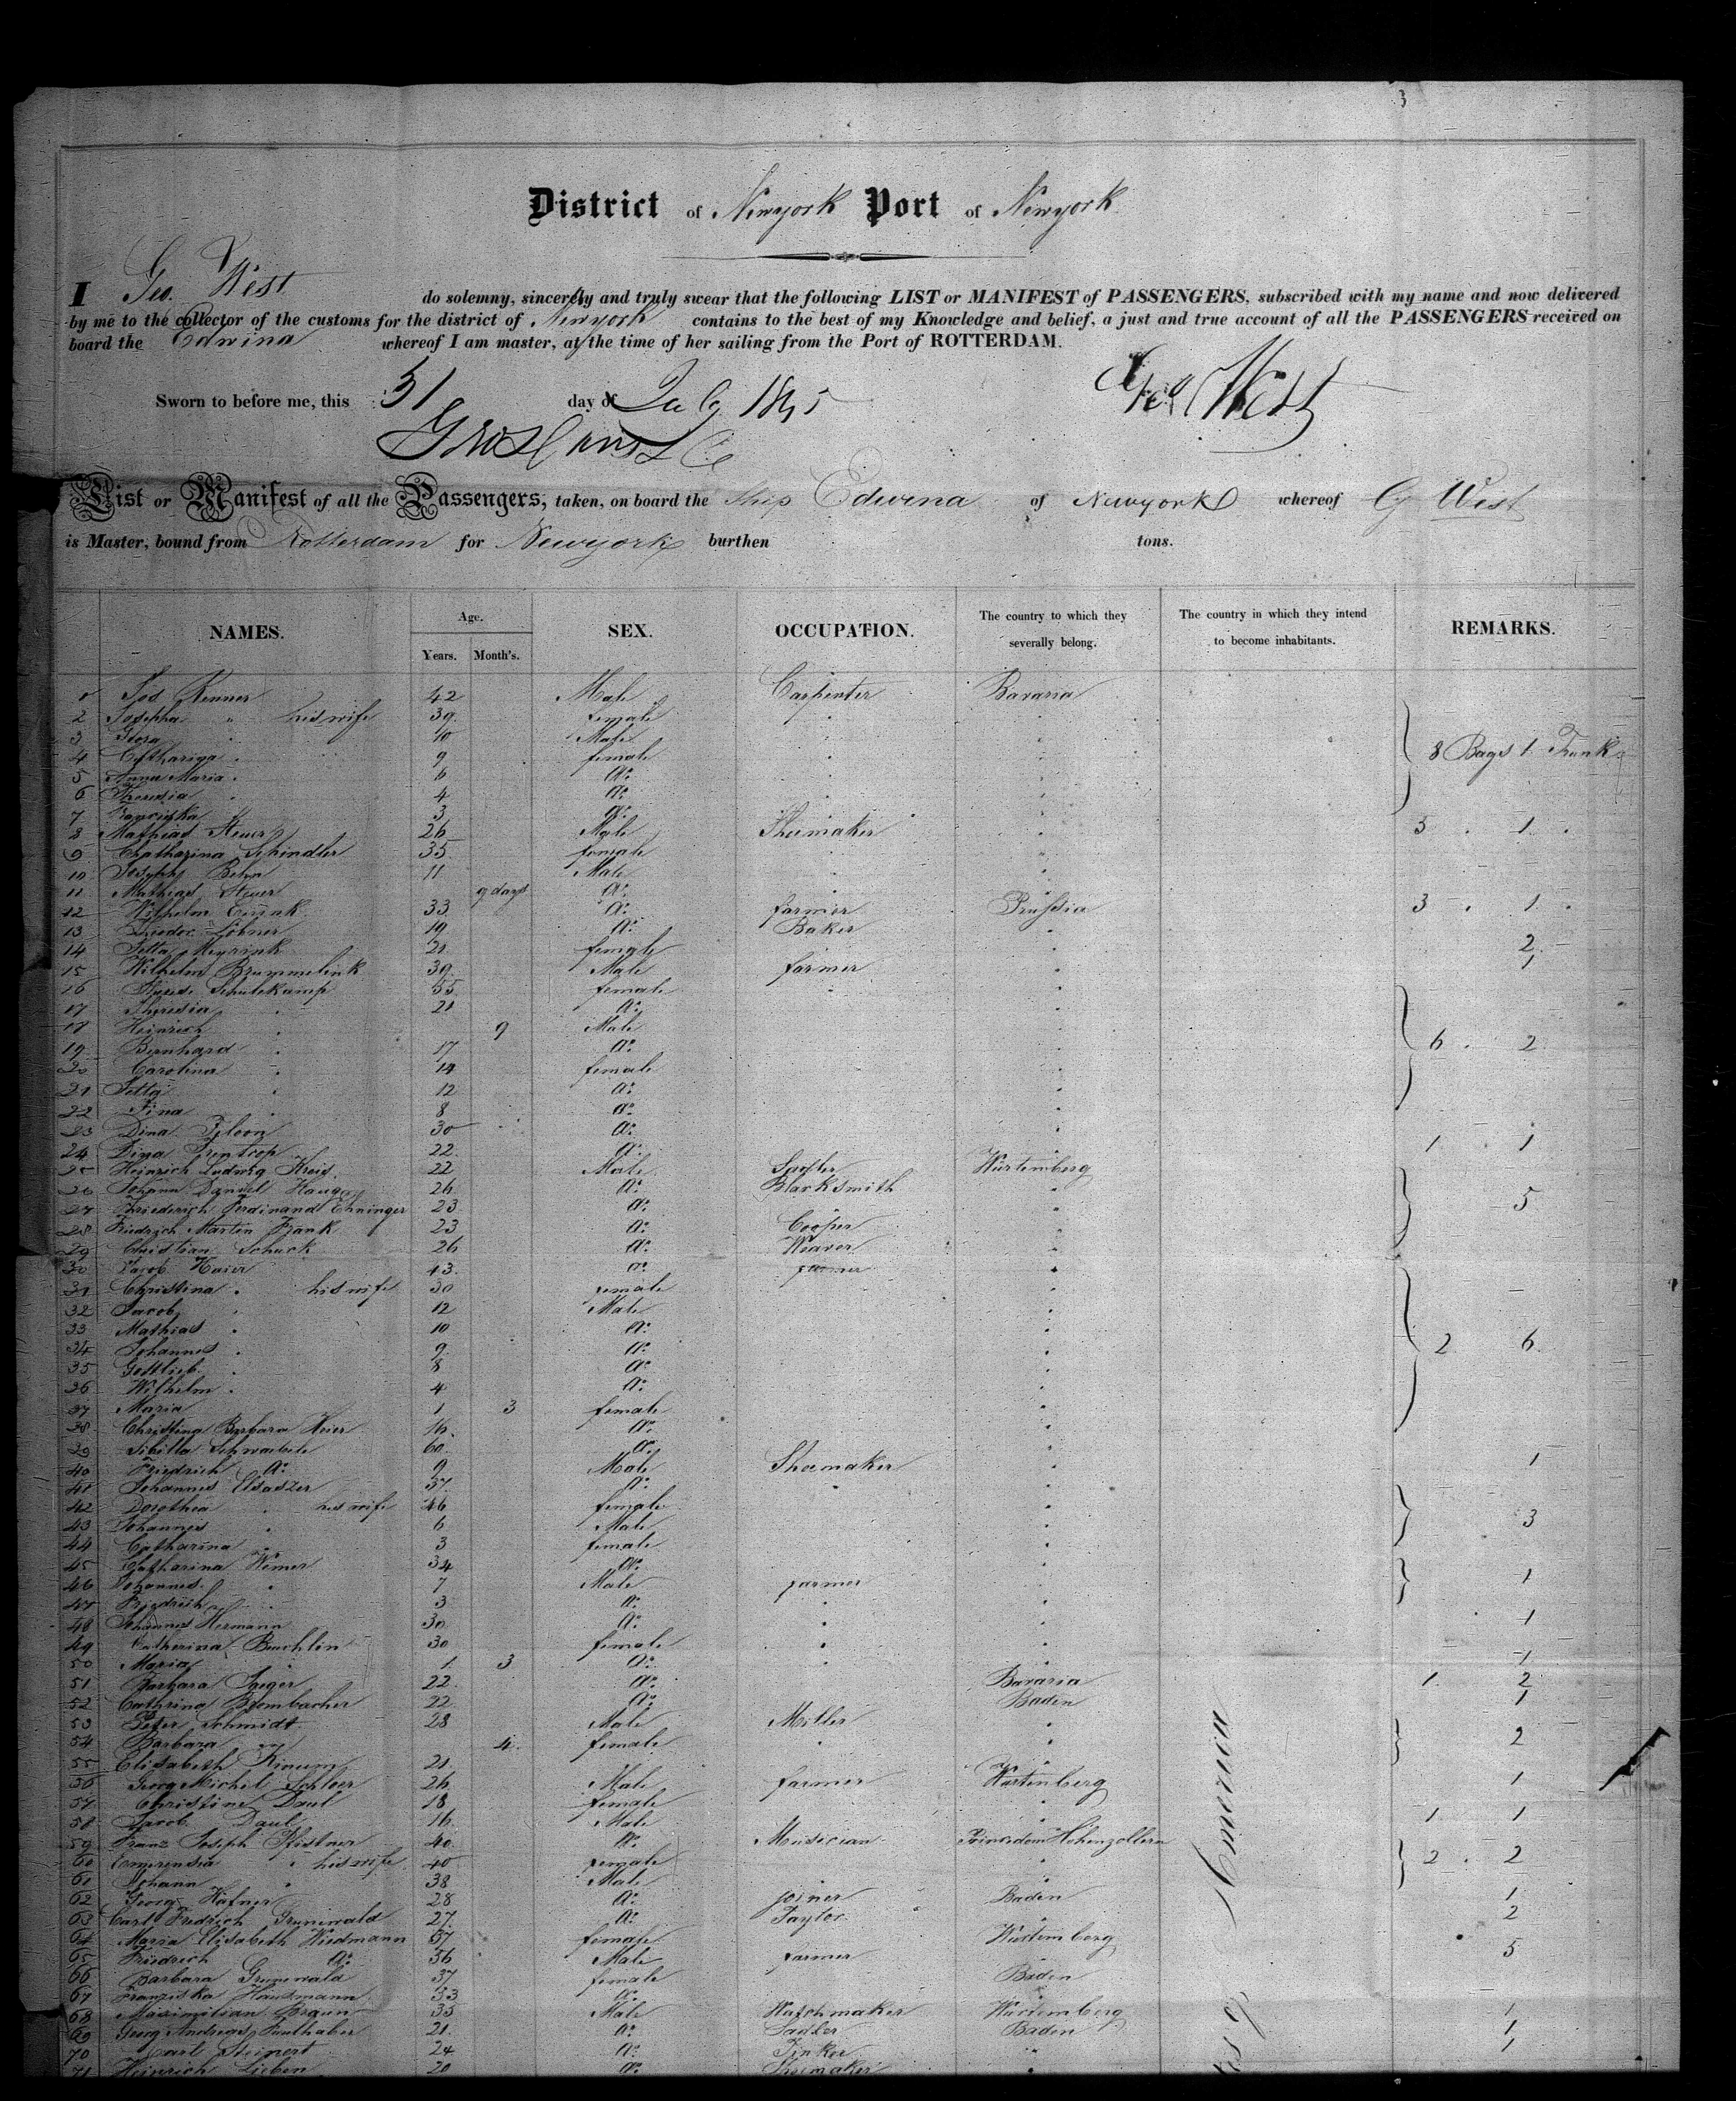 3
District of Newyork Port of Newyork
I Geo. West do solemny, sincerely and truly swear that the following LIST or MANIFEST of PASSENGERS, subscribed with my name and now delivered
by me to the collector of the customs for the district of Newyork contains to the best of my Knowledge and belief, a just and true account of all the PASSENGERS received on
board the Edwina whereof I am master, at the time of her sailing from the Port of ROTTERDAM.
Sworn to before me, this 31 day of July 1845 Geo West
List or Manifest of all the Passengers, taken, on board the Ship Edwina of Newyork whereof G West
is Master, bound from Rotterdam for Newyork burthen tons.
NAMES. Age. Years. Month's. SEX. OCCUPATION. The country to which they severally belong. The country in which they intend to become inhabitants. REMARKS.
1 Renner 42 Male Carpenter Bavaria
2 Josepha " his wife 39. female
3 10 Male
4 9 female 8 Bags 1 Trunk
5 Anna Maria 6 do
6 Theresia 4 do
7 3 do
8 Mathias Steuer 26 Male Shoemaker 3 . 1 .
9 Chatharina Schindler 35 female
10 Joseph Behn 11 Male
11 Mathias Steuer 9 days do
12 Wilhelm 33 do farmer Prussia 3 . 1 .
13 Theodor Löbner 19 do Baker
14 Jetta Meyrink 21 female 2
15 Wilhelm Brummelink 39. Male farmer 1
16 Schulekamp 55. female
17 Theresia 21 do
18 Heinrich 9 Male
19 Bernhard 17 do 6 . 2
20 Carolina 14 female
21 Jetta 12 do
22 Fina 8 do
23 Dina 30 do
24 Dina Trentrop 22. do 1 1
25 Heinrich Ludwig Kreis 22 Male Würtemberg
26 Johann Daniel Hauga 26 do Blacksmith 5
27 Friederich Ferdinand Ehninger 23 do
28 Friedrich Martin Frank 23 do Cooper
29 Christian Schuck 26 do Weaver
30 Jacob Haier 43. do farmer
31 Christina " his wife 30 female
32 Jacob 12 Male
33 Mathias 10 do
34 Johannes 9 do 2 6
35 Gottlieb 8 do
36 Wilhelm 4 do
37 Maria 1 3 female
38 Christina Barbara Heier 16. do
39 Sibilla Schwabele 60. do
40 Friedrich do 9 Male Shoemaker 1
41 Johannes Elsaszer 37. do
42 Dorothea his wife 46 female
43 Johannes 6 Male 3
44 Catharina 3 female
45 Catharina Wimer 34 do
46 Johannes 7 Male farmer 1
47 Friedrich 3 do
48 Johannes Hermann 30 do 1
49 Catherina Buchlin 30 female
50 Maria 1 3 do 1
51 Barbara Saeger 22. do Bavaria 1. 2
52 Cathrina Brombacher 22 do Baden 1
53 Peter Schmidt 28 Male Miller
54 Barbara 4. female 2
55 Elisabeth 21.
56 Georg Michel Schloer 26 Male farmer Würtenberg 1
57 Christine Daul 18 female
58 Jacob Daul 16 Male 1 1
59 Franz Joseph Pfistner 40 do Musician Princedom Hohenzollern
60 Emerensia " his wife 40 female 2 . 2
61 Johann 38 Male
62 Georg Hafner 28 do joiner Baden 1
63 Carl Fredrich Grunewald 27. do Taylor 2
64 Maria Elisabeth Wiedmann 67 female Würtemberg
65 Friedrich do 36 Male farmer 5
66 Barbara Grunewald 37 female Baden
67 Franziska Hausmann 33 do
68 Maximilian Braun 35 Male Watchmaker Würtemberg 1
69 Georg Andreas Faulhaber 21. do Sadler Baden 1
70 Carl Steinert 24 do Tinker 1
71 Heinrich Lieben 20 do Shoemaker
America